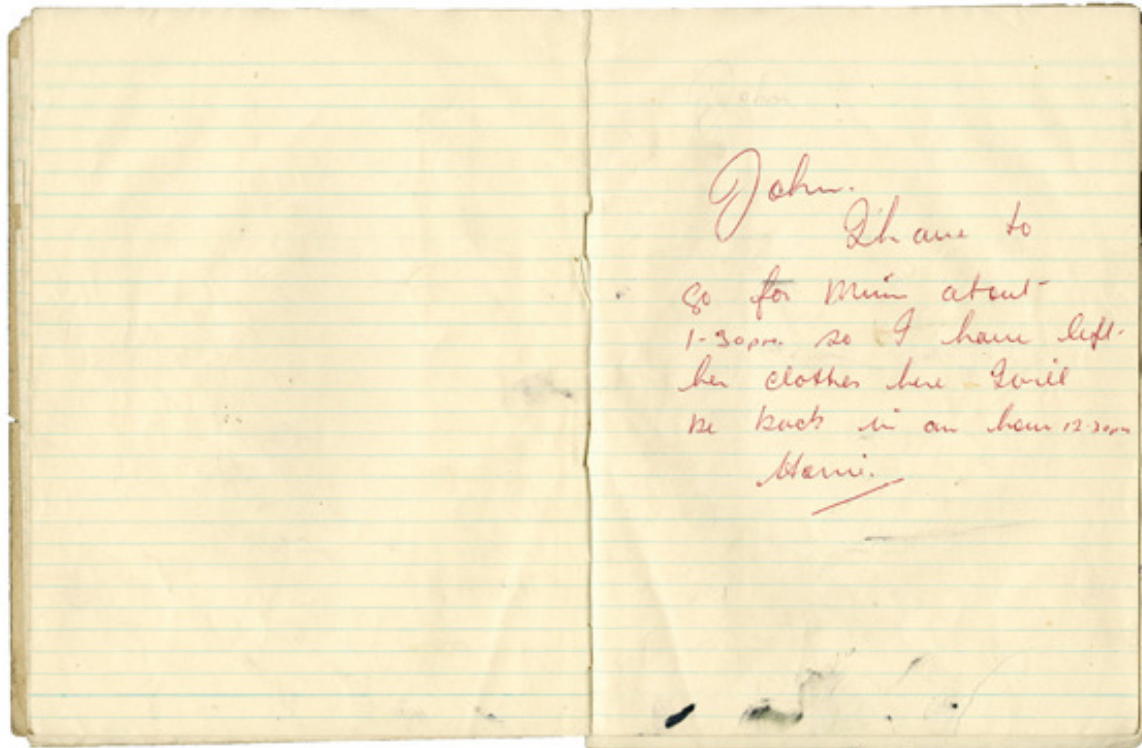 John.
I have to
go for Mum about
1-30pm. so I have left
her clothes here I will
be back in an hour 12-30pm